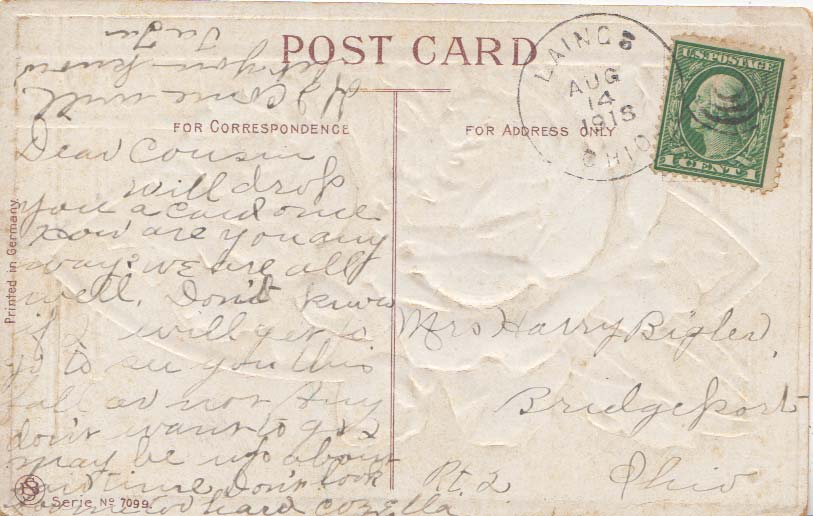 POST CARD
LAINGS
AUG
14
1918
OHIO
U.S. POSTAGE
1 CENT 1
FOR CORRESPONDENCE
FOR ADDRESS ONLY
Dear Cousin
will drop
you a card once
How are you any
way? we are all
well. Don't know
if I will get to
go to see you this
fall or not Guy
don't want to go I
may be up about
time Don't look
too hard Cozella
If I come will
let you know
Mrs Harry Bigler,
Bridgeport
Rt. 2 Ohio
Printed in Germany
Serie No 7099.